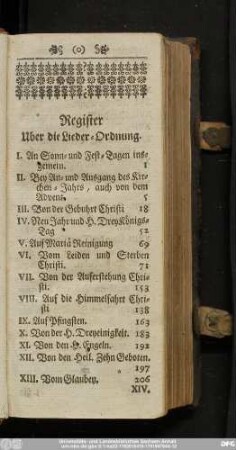 (o)
Register
Uber die Lieder-Ordnung.
I. An Sonn- und Fest-Tagen ins-
gemein. 1
II. Bey An- und Ausgang des Kir-
chen-Jahrs, auch von dem
Advent. 5
III. Von der Gebuhrt Christi 18
IV. Neu Jahr und H. Drey Königs-
Tag 52
V. Auf Mariä Reinigung 69
VI. Vom Leiden und Sterben
Christi. 71
VII. Von der Auferstehung Chri-
sti. 153
VIII. Auf die Himmelfahrt Chri-
sti 138
IX. Auf Pfingsten. 163
X. Von der H. Dreyeinigkeit. 183
XI. Von den H. Engeln. 192
XII. Von den Heil. Zehn Geboten.
197
XIII. Vom Glauben. 206
XIV.
Universitäts- und Landesbibliothek Sachsen-Anhalt